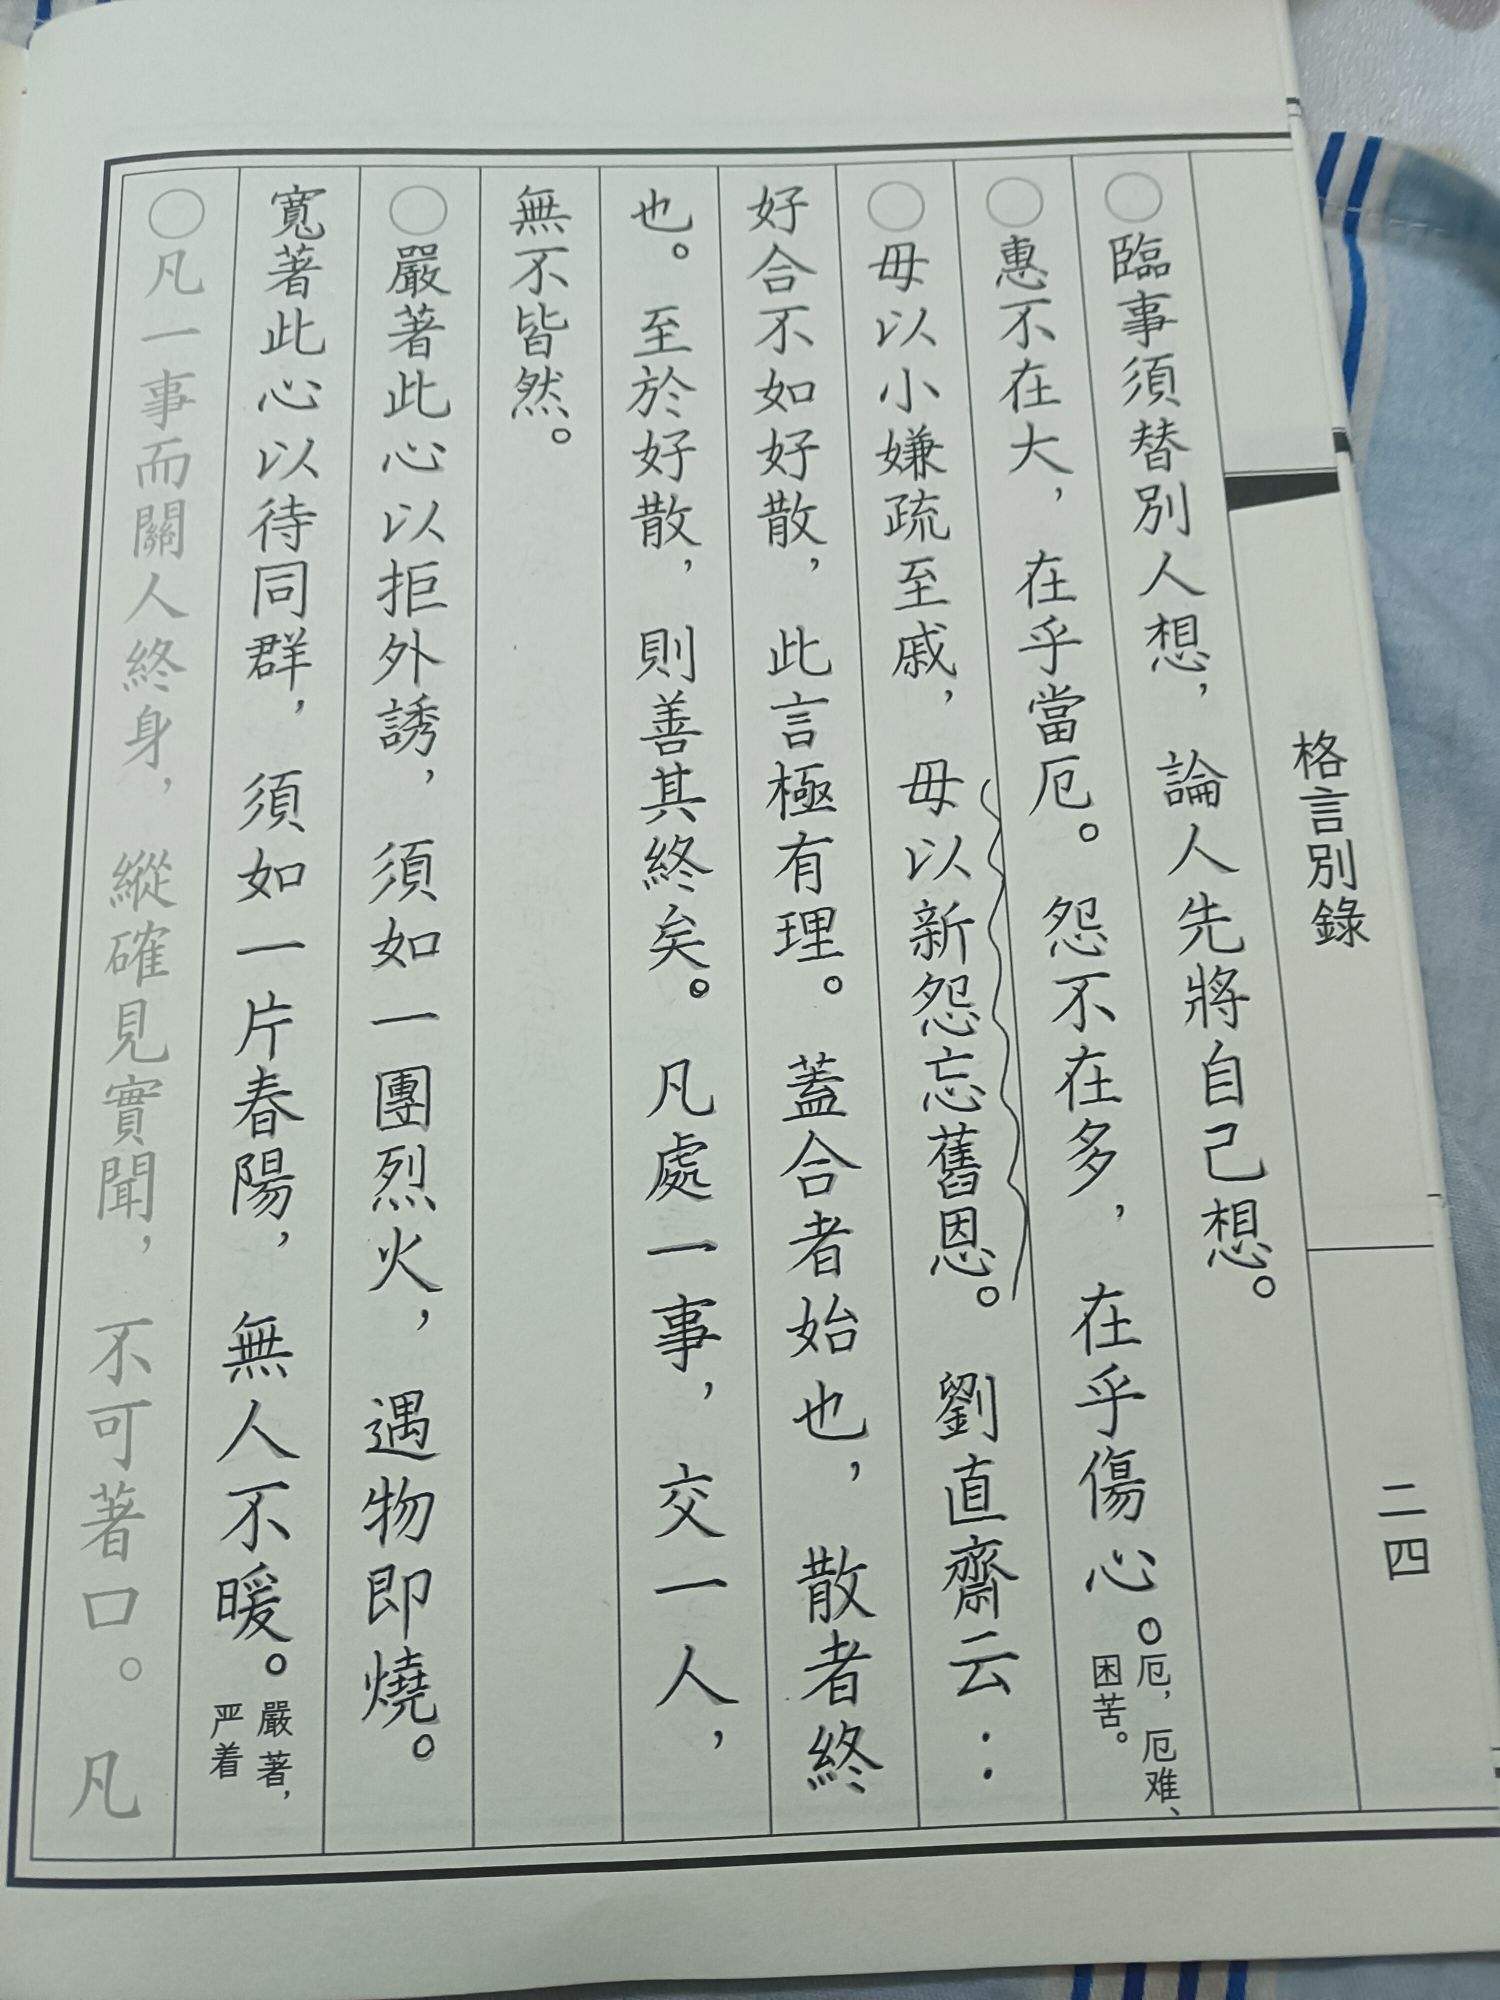 格言別錄
二四
○臨事須替別人想，論人先將自己想。
○惠不在大，在乎當厄。怨不在多，在乎傷心。厄，厄难、
困苦。
○毋以小嫌疏至戚，毋以新怨忘舊恩。劉直齋云：
好合不如好散，此言極有理。蓋合者始也，散者終
也。至於好散，則善其終矣。凡處一事，交一人，
無不皆然。
○嚴著此心以拒外誘，須如一團烈火，遇物即燒。
寬著此心以待同群，須如一片春陽，無人不暖。嚴著，
严着
○凡一事而關人終身，縱確見實聞，不可著口。凡